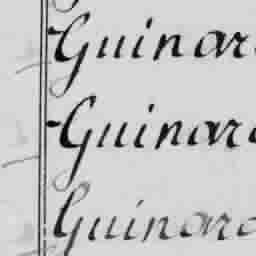 Guinar
Guinar
Guinar